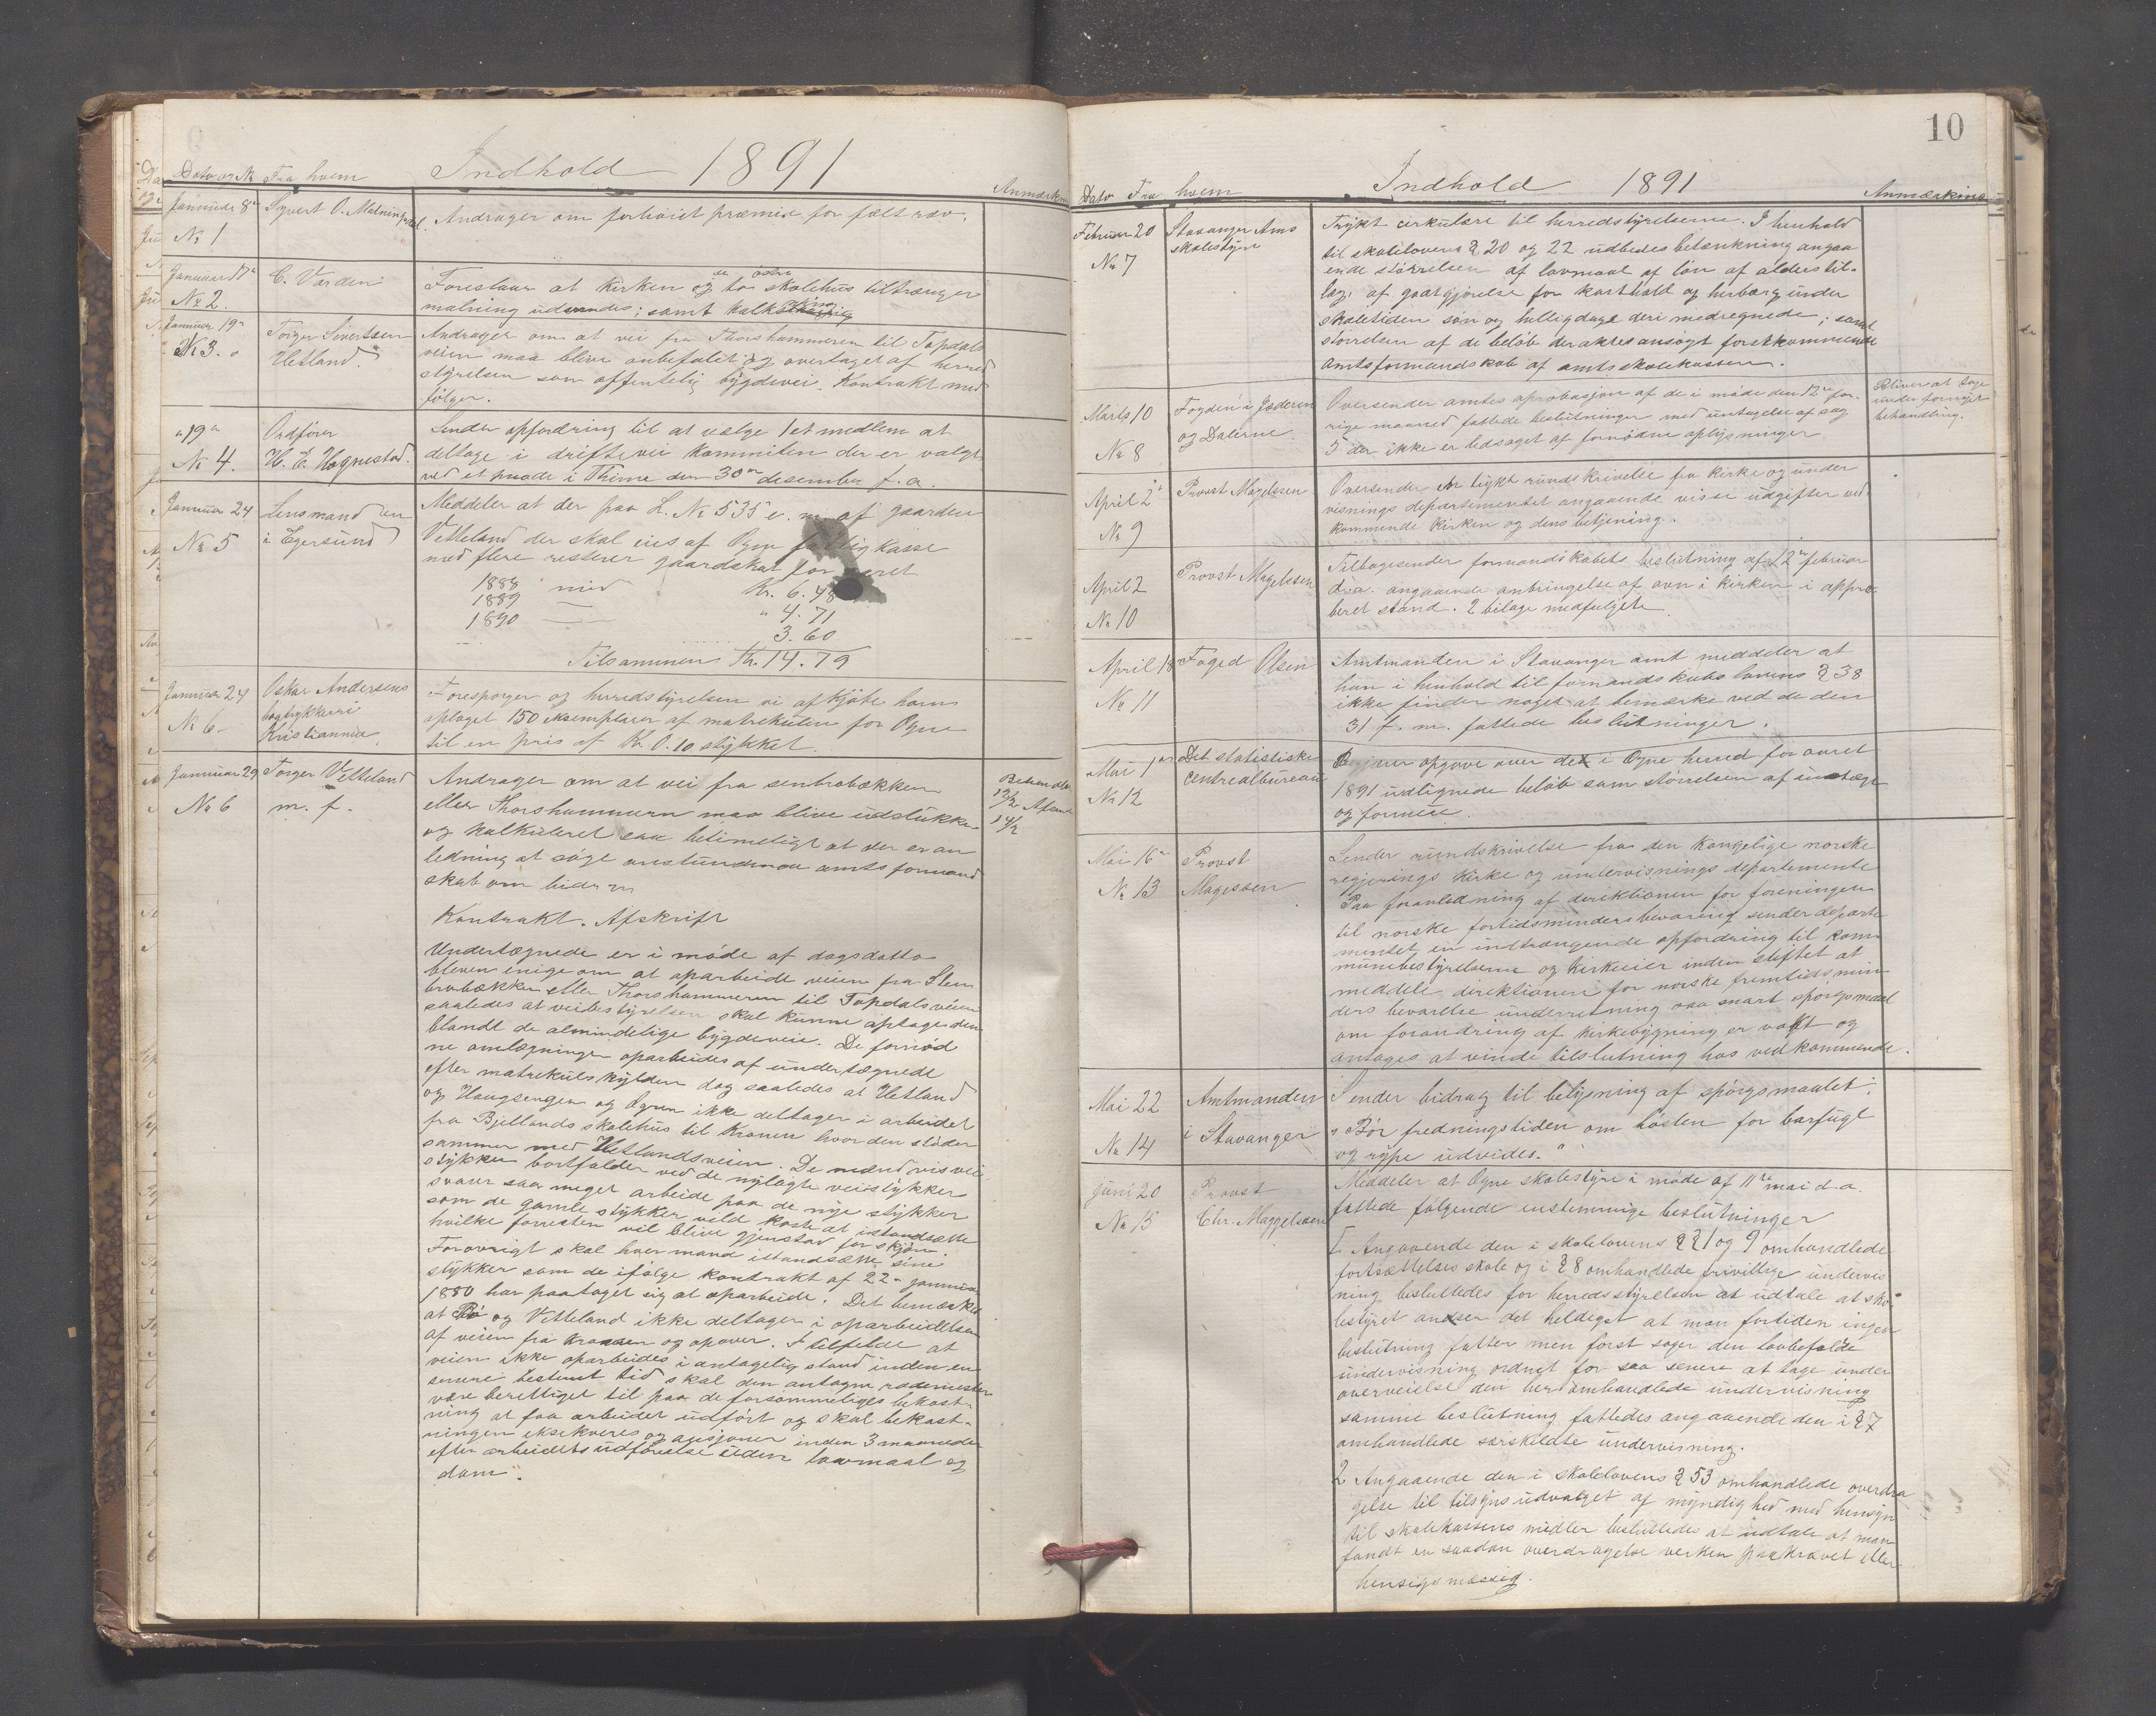 Indhold 1891
Dato og No Fra hvem
Anmærkn
Januar 8de Syvert O. Malmin Andrager om forhøiet præmie for fælt ræv.
No 1
Januar 17de C. Varden Foreslaar at kirken og to skolehus tiltrænger
No 2. malning udvendes; samt kalk
Januar 19de Torger Sivertsen Andrager om at vei fra Thorshammeren til Topdals
No 3. Vetland. veien maa blive anbefalet og overtaget af herred
styrelsen som offentelig bygdevei. Kontrakt med
følger.
" 19de Ordfører Sender opfordring til at vælge 1 et medlem at
No 4. H. E. Hognestad. deltage i driftsvei kommiten der er valgt
ved et møde i Thime den 30te desember f. a.
Januar 24 Lensmanden Meddeler at der paa L. No 535 e. m. af gaarden
No 5 i Egersund Vetteland der skal eies af Ogne fattigkasse
med flere resterer gaardskat for aaret
1888 med Kr. 6.48
1889 — " 4.71
1890 — 3.60
Tilsammen Kr. 14.79
Januar 24 Oskar Andersens Forespørger og herredstyrelsen vi afkjøbe hans
No 6 bogtrykkeri oplaget 150 eksemplarer af matrekulen for Ogne
Kristiannia til en pris af Kr. 0.10 stykket.
Januar 29 Torger Vetteland Andrager om at vei fra senbrobækken
No 6 m. f. eller Thorshammern maa blive udstukke
Behandlet 13/2 Afsendt 14/2
og kalkuleret saa betimeligt at der er an
ledning at søge anstundende amts formand
skab om bidrag
Kontrakt. Afskrift
Undertegnede er i møde af dagsdatto
bleven enige om at oparbeide veien fra Sten
brobækken eller Thorshammeren til Topdalsveien
saaledes at veibestyrelsen skal kunne optage den
blandt de almindelige bygdeveie. De fornød
ne omlegninger oparbeides af undertegnede
efter matrekulskylden dog saaledes at Vetland
og Haugsengen og Ogren ikke deltager i arbeidet
fra Bjellands skolehus til Kronen hvor den støder
sammen med Vetlandsveien. De mænd vis vei
stykker bortfalder ved de nylagte veistykker
svarer saa meget arbeide paa de nye stykker
som de gamle stykker vild koste at istandsætte
hvilke forresten vil blive gjenstand for skjøn.
Forøvrigt skal hver mand istandsætte sine
stykker som de ifølge kontrakt af 22de januar
1880 har paataget sig at oparbeide. Det bemærkes
at Bø og Vetteland ikke deltager i oparbeidelsen
af veien fra Kronen og opover. I tilfelde at
veien ikke oparbeides i antagelig stand inden en
senere bestemt tid skal den antagne rodemester
være berettiget til paa de forsømmeliges bekost-
ning at faa arbeidet udført og skal bekost-
ningen eksekveres og avisjoner inden 3 maaneder
efter arbeidets udførelse uden lavmaal og
dom.
10
Indhold 1891
Dato Fra hvem Anmærkning
Februar 20 Stavanger Ams Trykt cirkulære til herredstyrelserne. I henhold
No 7 skolestyre til skolelovens § 20 og 22 udbedes betænkning angaa
ende størrelsen af lavmaal af løn af alderstil-
læg, af godtgjørelse for kosthold og herberg under
skoletiden søn og helligdage deri medregnede; samt
størrelsen af de beløb der aktes ansøgt forstkommende
amtsformandskab af amtsskolekassen.
Marts 10 Fogden i Jæderen Oversender amtets aprobasjon af de i møde den 12te for-
No 8 og Dalerne. rige maaned fattede beslutninger med untagelse af sag
5 der ikke er ledsaget af fornødne oplysninger.
Bliver at tage
under fornyet
behandling.
April 2de Provst Magelssen Oversender en trykt rundskrivelse fra Kirke og under
No 9 visnings departementet angaaende visse udgifter ved-
kommende Kirken og dens betjening.
April 2 Provst Magelssen Tilbagesender formandskabets beslutning af 12te februar
No 10 d. a. angaaende anbringelse af ovn i kirken i appro-
beret stand. 2 bilage medfulgte.
April 18 Foged Olsen Amtmanden i Stavanger amt meddeler at
No 11 han i henhold til formandskabs lovens § 38
ikke finder noget at bemærke ved de den
31 f. m. fattede beslutninger.
Mai 1ste Det statistiske Begjærer opgave over det i Ogne herred for aaret
No 12 Centralbureau 1891 udlignede beløb som størrelsen af indtægt
og formue.
Mai 16de Provst Sender rundskrivelse fra den kongelige norske
No 13 Magelssen regjerings Kirke og undervisnings departemente
Paa foranledning af direktionen for foreningen
til norske fortidsminders bevaring sender departe
mentet en indtrængende opfordring til kom
munebestyrelserne og kirkeeier inden stiftet at
meddele direktionen for norske fremtidsmin
ders bevarelse underretning saa snart spørgsmaal
om forandring af kirkebygning er vakt og
antages at vinde tilslutning hos vedkommende.
Mai 22 Amtmanden Sender bidrag til belysning af spørgsmaalet:
No 14 i Stavanger "Bør fredningstiden om høsten for barfugl
og rype udvides."
Juni 20 Provst Meddeler at Ogne skolestyre i møde af 11te mai d. a.
No 15 Chr. Maggelssen fattede følgende enstemmige beslutninger
1 Angaaende den i skolelovens §§ 1 og 9 omhandlede
fortsættelses skole og i § 8 omhandlede frivillige undervis
ning besluttedes for herredsstyrelsen at udtale at sko
lestyret anser det heldigst at man fortiden ingen
beslutning fatter men først søger den lovbefalde
undervisning ordnet for saa senere at tage under
overveielse den her omhandlede undervisning
samme beslutning fattedes angaaende den i § 7
omhandlede særskildte undervisning.
2 Angaaende den i skolelovens § 53 omhandlede overdra
gelse til tilsynsudvalget af myndighed med hensyn
til skolekassens midler besluttedes at udtale at man
fandt en saadan overdragelse verken paakrævet eller
hensigsmæssig.